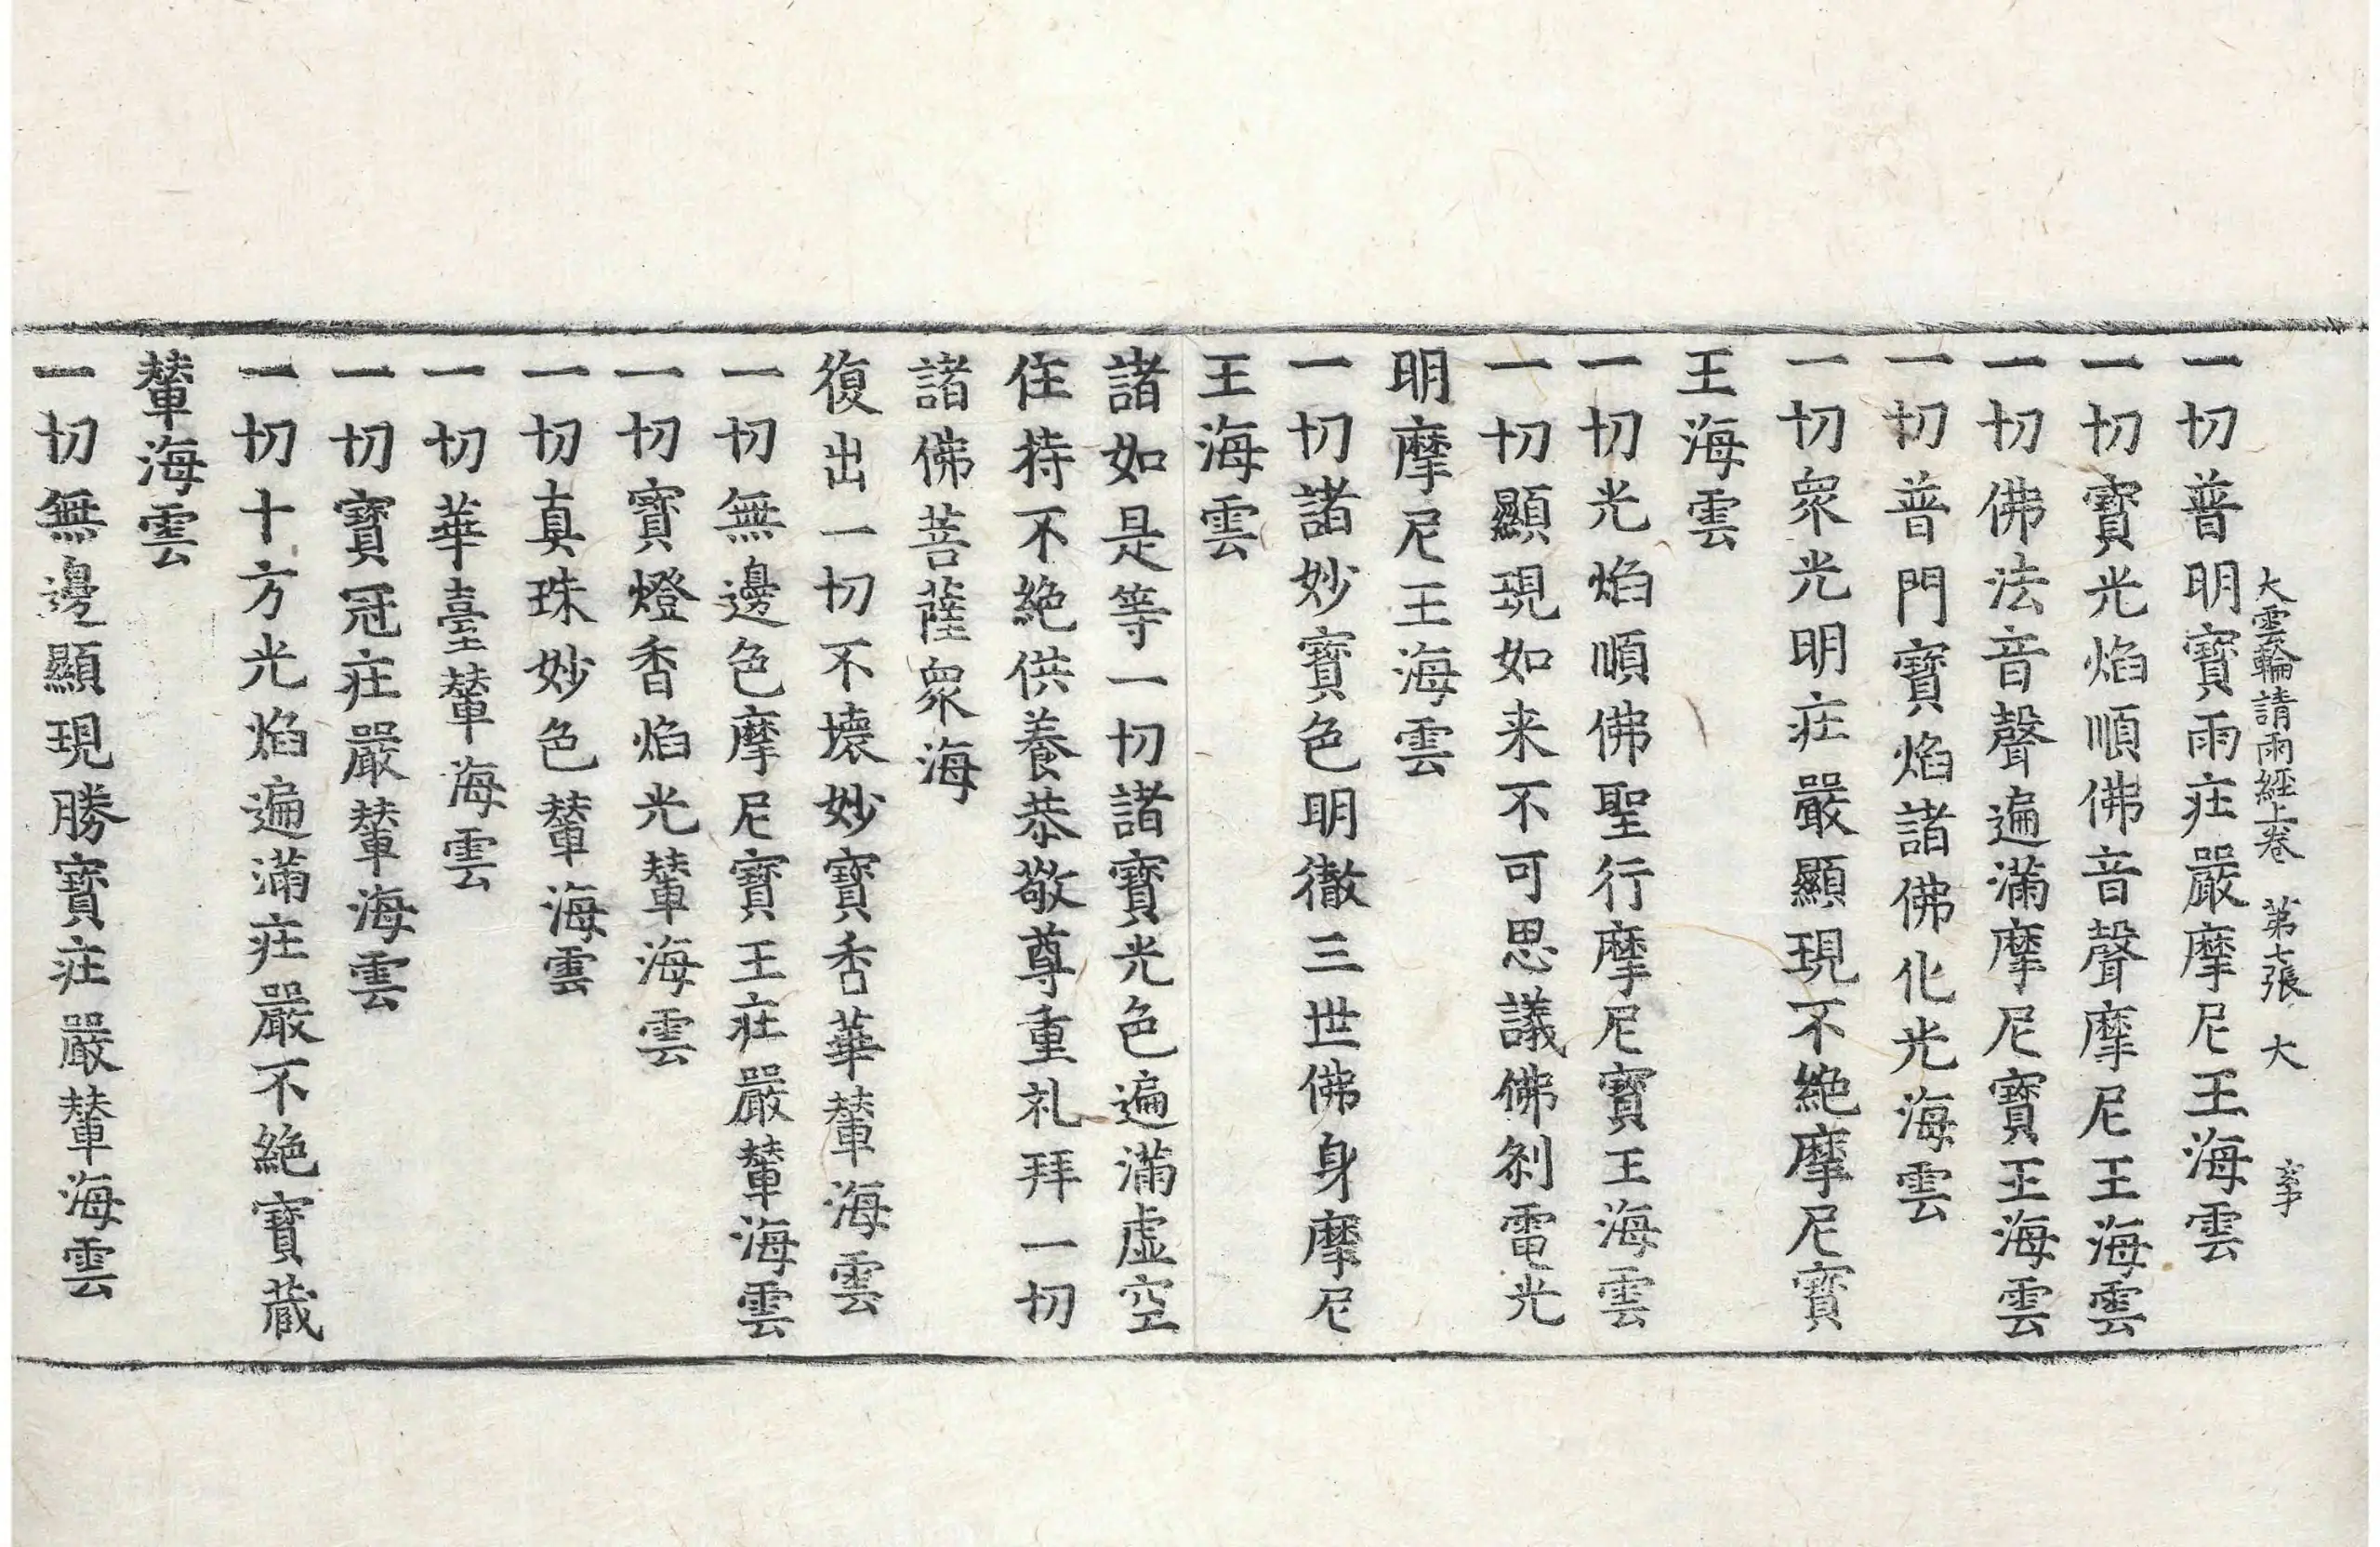 大雲輪請雨經上卷 第七張 大
一切普明寶雨莊嚴摩尼王海雲
一切寶光焰順佛音聲摩尼王海雲
一切佛法音聲遍滿摩尼寶王海雲
一切普門寶焰諸佛化光海雲
一切衆光明莊嚴顯現不絶摩尼寶
王海雲
一切光焰順佛聖行摩尼寶王海雲
一切顯現如来不可思議佛刹電光
明摩尼王海雲
一切諸妙寶色明徹三世佛身摩尼
王海雲
諸如是等一切諸寶光色遍滿虚空
住持不絶供養恭敬尊重礼拜一切
諸佛菩薩衆海
復出一切不壞妙寶香華輦海雲
一切無邊色摩尼寶王莊嚴輦海雲
一切寶燈香焰光輦海雲
一切真珠妙色輦海雲
一切華臺輦海雲
一切寶冠莊嚴輦海雲
一切十方光焰遍滿莊嚴不絶寶蔵
輦海雲
一切無邊顯現勝寶莊嚴輦海雲